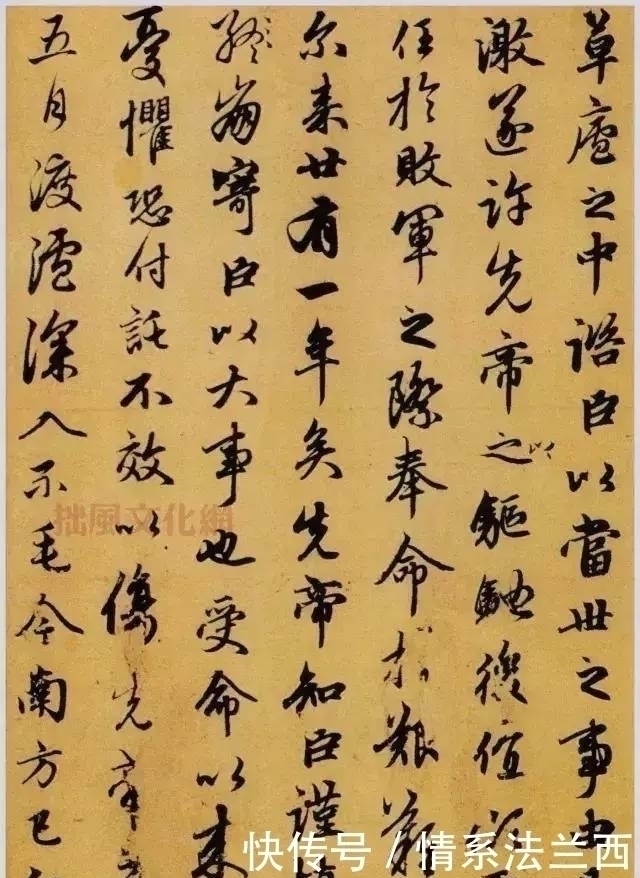 草廬之中諮臣以當世之事由
激遂許先帝之以驅馳後值
任於敗軍之際奉命於艱難
尔来廿有一年矣先帝知臣謹
臨崩寄臣以大事也受命以来
憂懼恐付託不效以傷先帝
五月渡瀘深入不毛今南方已
拙風文化網
快传号 / 情系法兰西